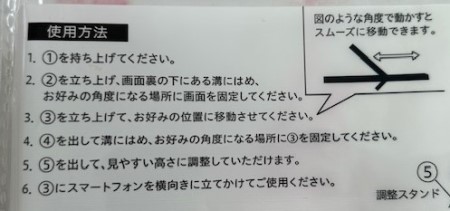 使用方法
図のような角度で動かすと
スムーズに移動できます。
1. ①を持ち上げてください。
2. ②を立ち上げ、画面裏の下にある溝にはめ、
お好みの角度になる場所に画面を固定してください。
3. ③を立ち上げて、お好みの位置に移動させてください。
4. ④を出して溝にはめ、お好みの角度になる場所に③を固定してください。
5. ⑤を出して、見やすい高さに調整していただけます。
6. ③にスマートフォンを横向きに立てかけてご使用ください。
⑤
調整スタンド